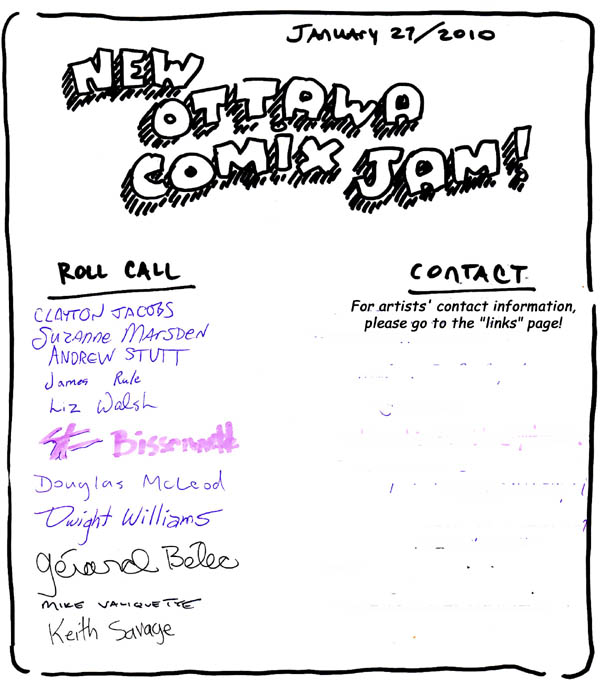 JANUARY 27/2010
NEW
OTTAWA
COMIX JAM!
ROLL CALL
CONTACT
For artists' contact information,
please go to the "links" page!
CLAYTON JACOBS
SUZANNE MARSDEN
ANDREW STUTT
James Rule
Liz Walsh
Douglas McLeod
Dwight Williams
Gérard Bélec
MIKE VALIQUETTE
Keith Savage